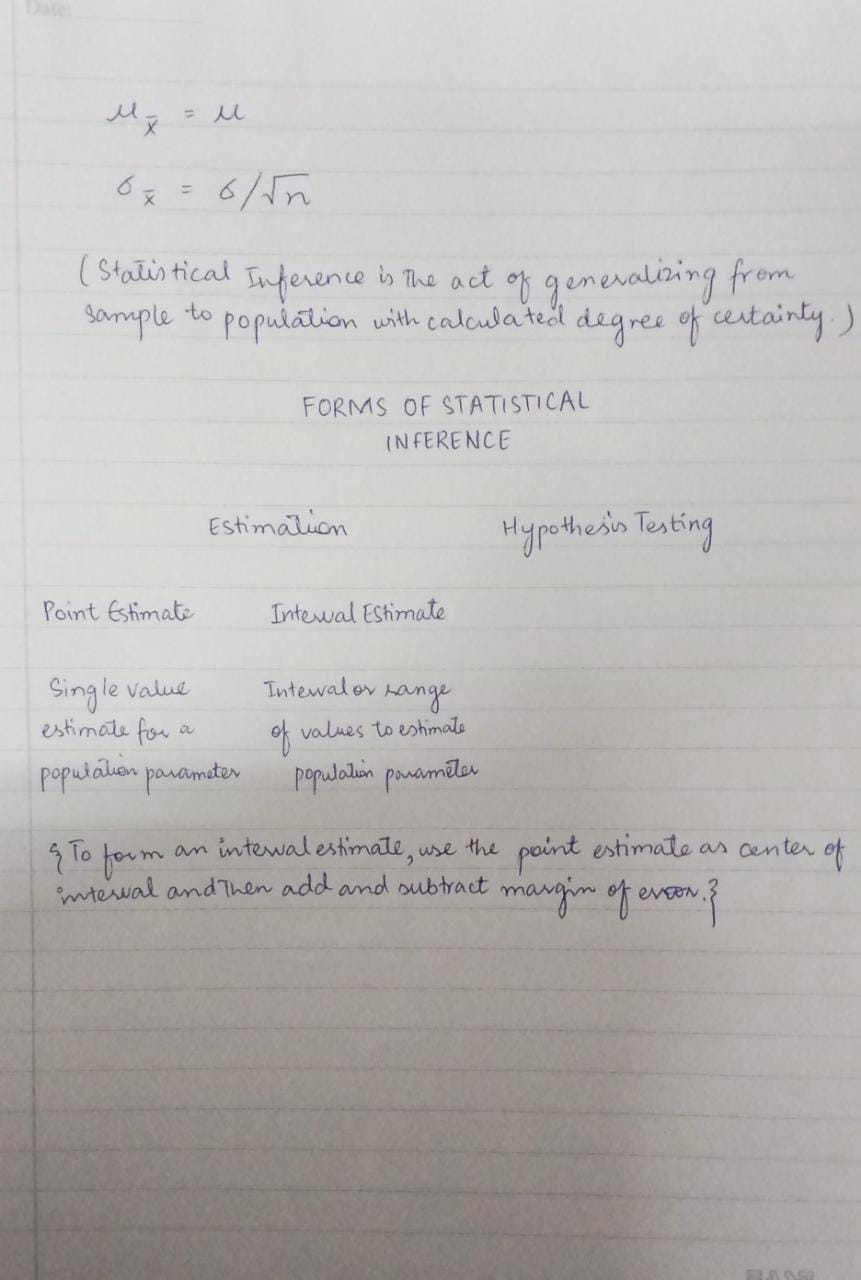 Date:
μ_x̄ = μ
σ_x̄ = σ/√n
(Statistical Inference is The act of generalizing from
sample to population with calculated degree of certainty.)
FORMS OF STATISTICAL
INFERENCE
Estimation Hypothesis Testing
Point Estimate Interval Estimate
Single value Interval or range
estimate for a of values to estimate
population parameter population parameter
{To form an interval estimate, use the point estimate as center of
interval and Then add and subtract margin of error.}